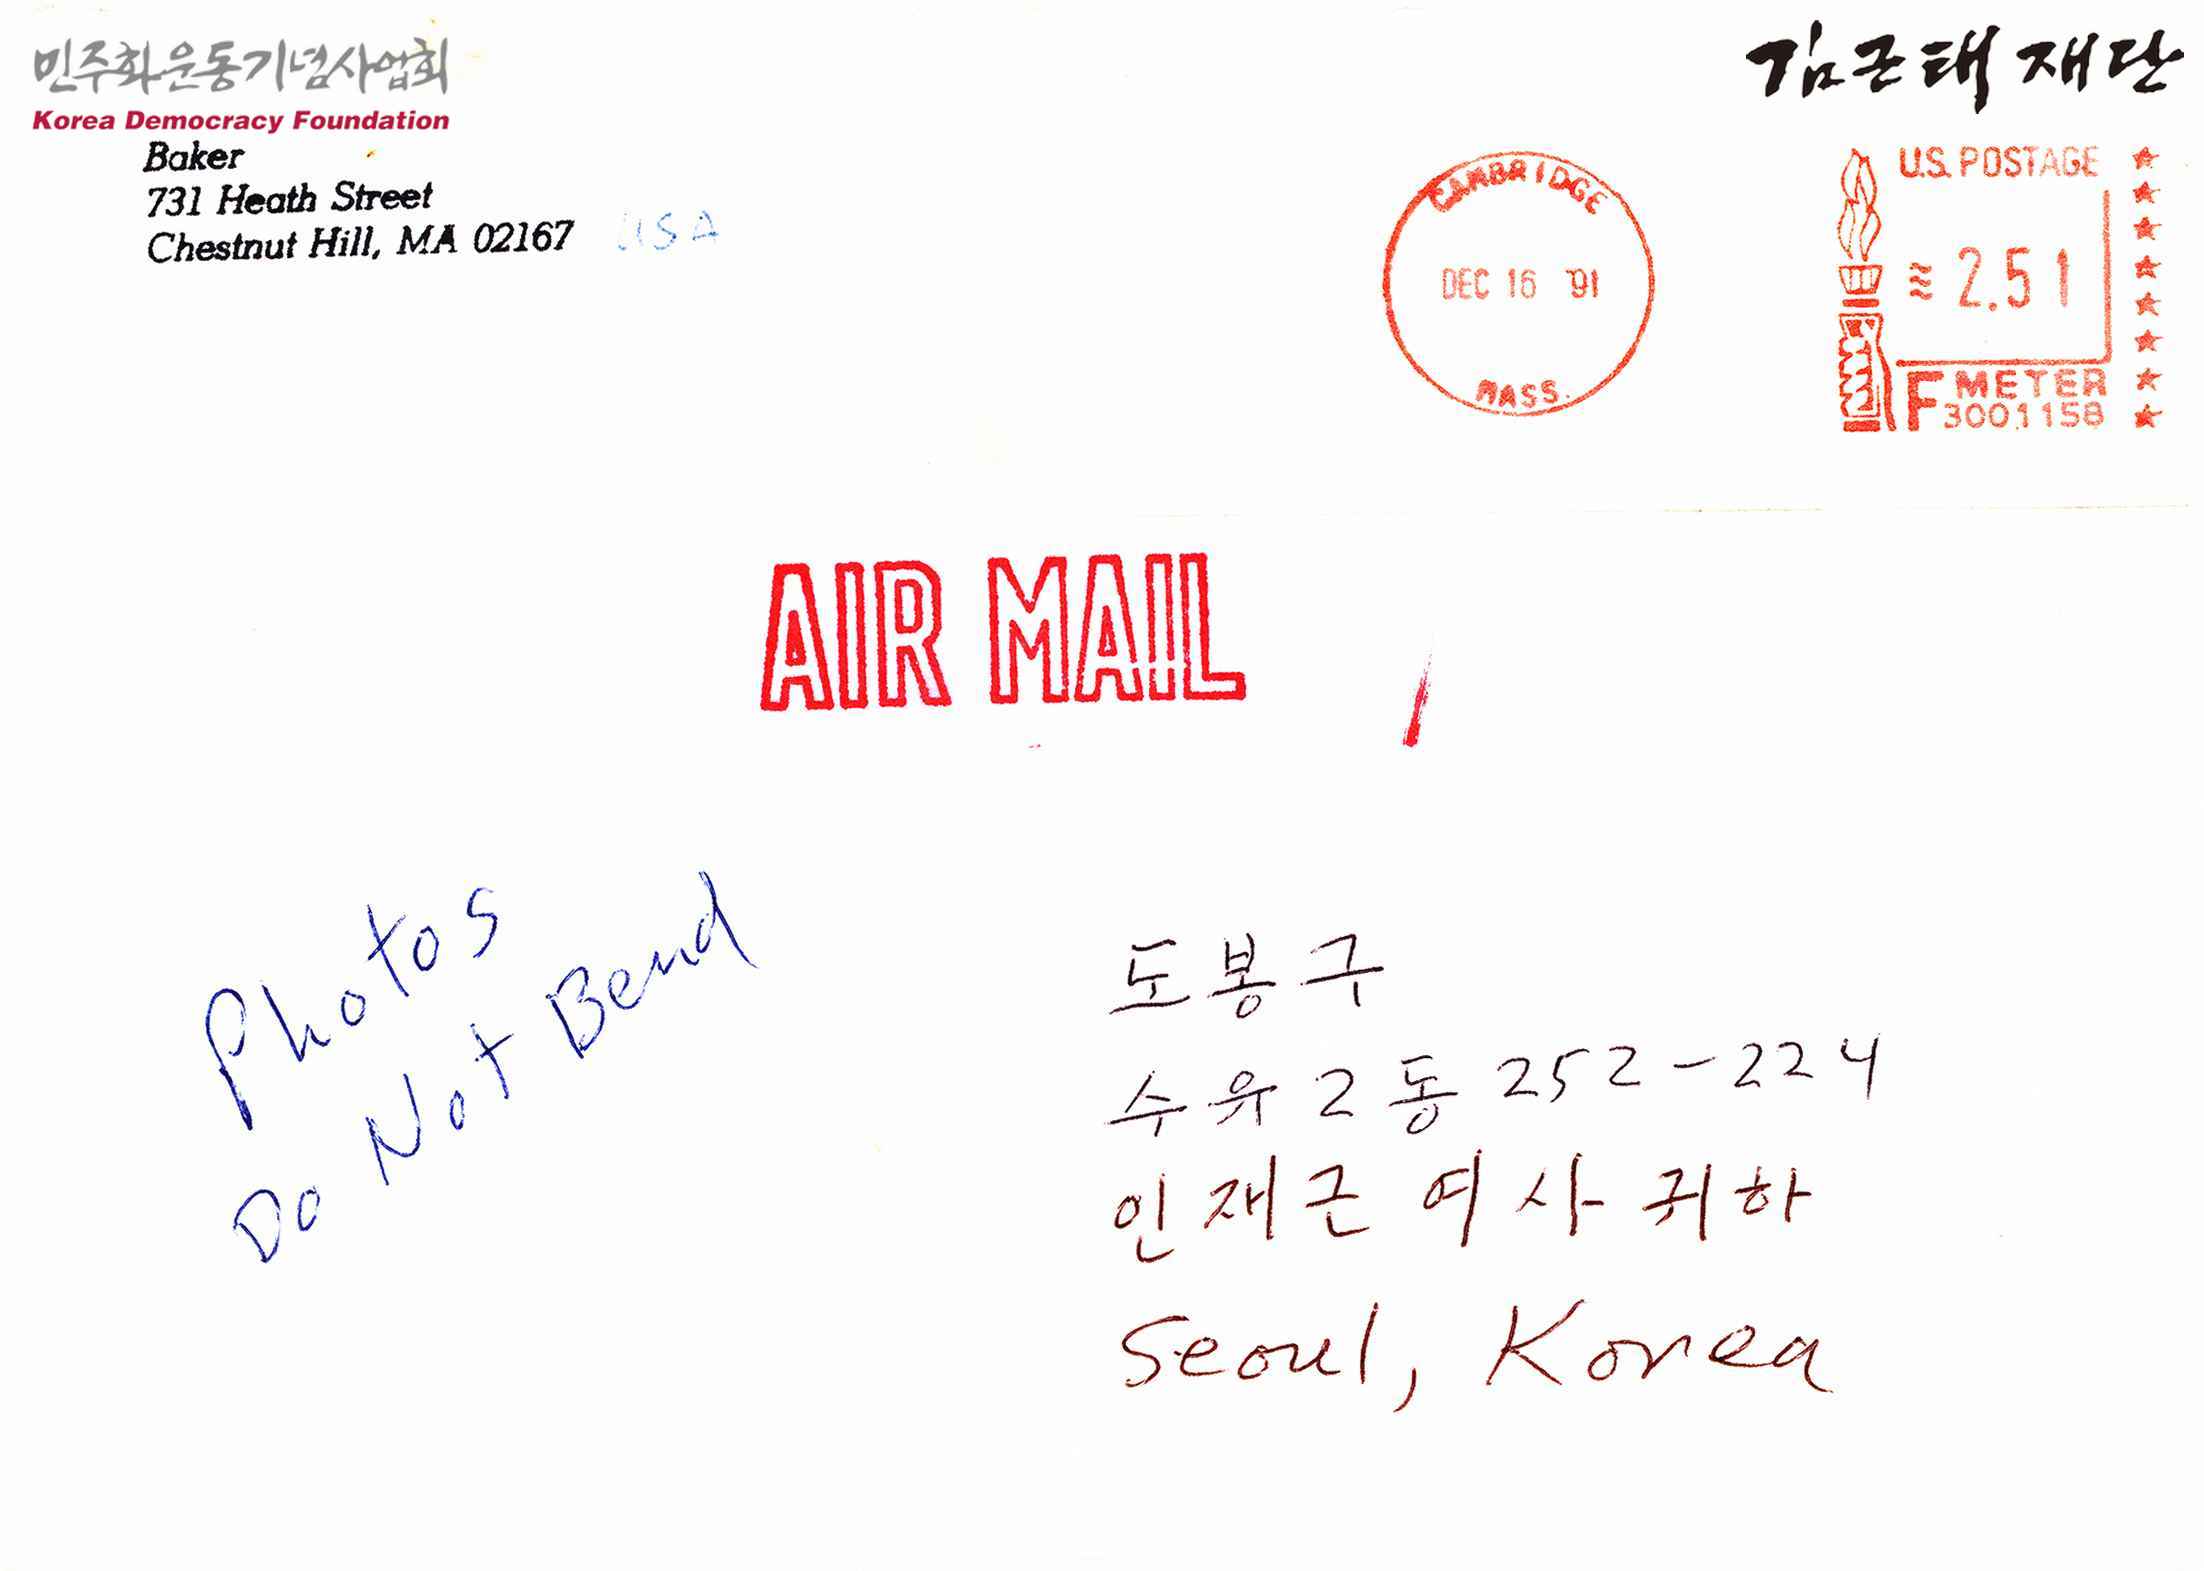 민주화운동기념사업회
김근태 재단
Korea Democracy Foundation
Baker
731 Heath Street
Chestnut Hill, MA 02167 USA
CAMBRIDGE
DEC 16 '91
MASS.
U.S. POSTAGE
2.51
F METER
3001158
AIR MAIL
Photos
Do Not Bend
도봉구
수유2동 252-224
인재근 여사 귀하
Seoul, Korea